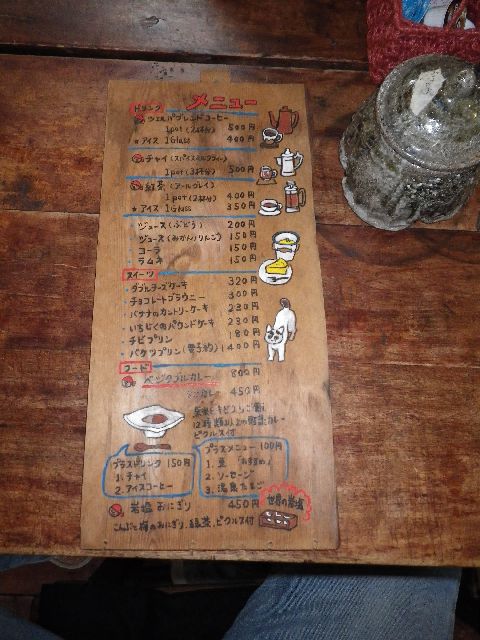 ドリンク メニュー
ブレンドコーヒー
1pot (2杯分) 500円
★アイス 1Glass 400円
チャイ (スパイスミルクティー)
1pot (3杯分) 500円
紅茶 (アールグレイ)
1pot (2杯分) 400円
★アイス 1Glass 350円
・ジュース (ぶどう) 200円
・ジュース (みかん/りんご) 150円
・コーラ 150円
・ラムネ 150円
スイーツ
・ダブルチーズケーキ 320円
・チョコレートブラウニー 300円
・バナナのカントリーケーキ 230円
・いちじくのパウンドケーキ 230円
・チビプリン 180円
・バケツプリン (要予約) 1400円
フード
ベジタブルカレー 800円
450円
12種類以上の野菜カレー
ピクルス付
プラスドリンク 150円
1. チャイ
2. アイスコーヒー
プラスメニュー 100円
1. 豆 「おすすめ」
2. ソーセージ
3. 温泉たまご
岩塩おにぎり 450円
世界の岩塩
こんぶと梅のおにぎり、緑茶、ピクルス付